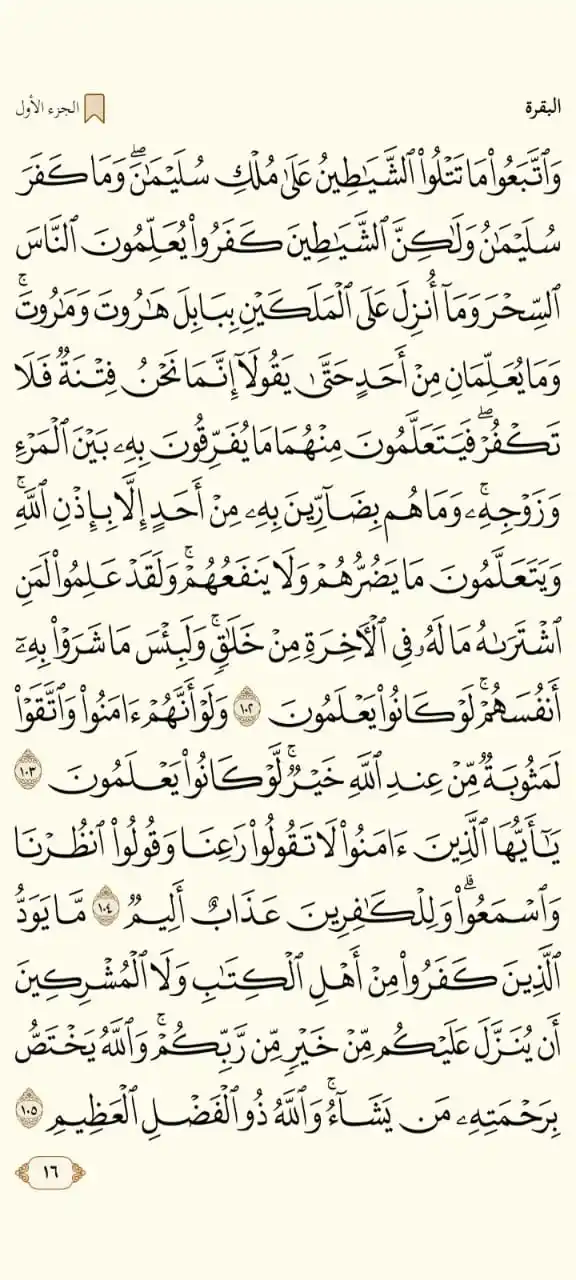 البقرة
الجزء الأول
وَٱتَّبَعُوا۟ مَا تَتْلُوا۟ ٱلشَّيَـٰطِينُ عَلَىٰ مُلْكِ سُلَيْمَـٰنَ ۖ وَمَا كَفَرَ
سُلَيْمَـٰنُ وَلَـٰكِنَّ ٱلشَّيَـٰطِينَ كَفَرُوا۟ يُعَلِّمُونَ ٱلنَّاسَ
ٱلسِّحْرَ وَمَآ أُنزِلَ عَلَى ٱلْمَلَكَيْنِ بِبَابِلَ هَـٰرُوتَ وَمَـٰرُوتَ ۚ
وَمَا يُعَلِّمَانِ مِنْ أَحَدٍ حَتَّىٰ يَقُولَآ إِنَّمَا نَحْنُ فِتْنَةٌ فَلَا
تَكْفُرْ ۖ فَيَتَعَلَّمُونَ مِنْهُمَا مَا يُفَرِّقُونَ بِهِۦ بَيْنَ ٱلْمَرْءِ
وَزَوْجِهِۦ ۚ وَمَا هُم بِضَآرِّينَ بِهِۦ مِنْ أَحَدٍ إِلَّا بِإِذْنِ ٱللَّهِ ۚ
وَيَتَعَلَّمُونَ مَا يَضُرُّهُمْ وَلَا يَنفَعُهُمْ ۚ وَلَقَدْ عَلِمُوا۟ لَمَنِ
ٱشْتَرَىٰهُ مَا لَهُۥ فِى ٱلْـَٔاخِرَةِ مِنْ خَلَـٰقٍ ۚ وَلَبِئْسَ مَا شَرَوْا۟ بِهِۦٓ
أَنفُسَهُمْ ۚ لَوْ كَانُوا۟ يَعْلَمُونَ ١٠٢ وَلَوْ أَنَّهُمْ ءَامَنُوا۟ وَٱتَّقَوْا۟
لَمَثُوبَةٌ مِّنْ عِندِ ٱللَّهِ خَيْرٌ ۚ لَّوْ كَانُوا۟ يَعْلَمُونَ ١٠٣
يَـٰٓأَيُّهَا ٱلَّذِينَ ءَامَنُوا۟ لَا تَقُولُوا۟ رَٰعِنَا وَقُولُوا۟ ٱنظُرْنَا
وَٱسْمَعُوا۟ ۗ وَلِلْكَـٰفِرِينَ عَذَابٌ أَلِيمٌ ١٠٤ مَّا يَوَدُّ
ٱلَّذِينَ كَفَرُوا۟ مِنْ أَهْلِ ٱلْكِتَـٰبِ وَلَا ٱلْمُشْرِكِينَ
أَن يُنَزَّلَ عَلَيْكُم مِّنْ خَيْرٍ مِّن رَّبِّكُمْ ۚ وَٱللَّهُ يَخْتَصُّ
بِرَحْمَتِهِۦ مَن يَشَآءُ ۚ وَٱللَّهُ ذُو ٱلْفَضْلِ ٱلْعَظِيمِ ١٠٥
١٦